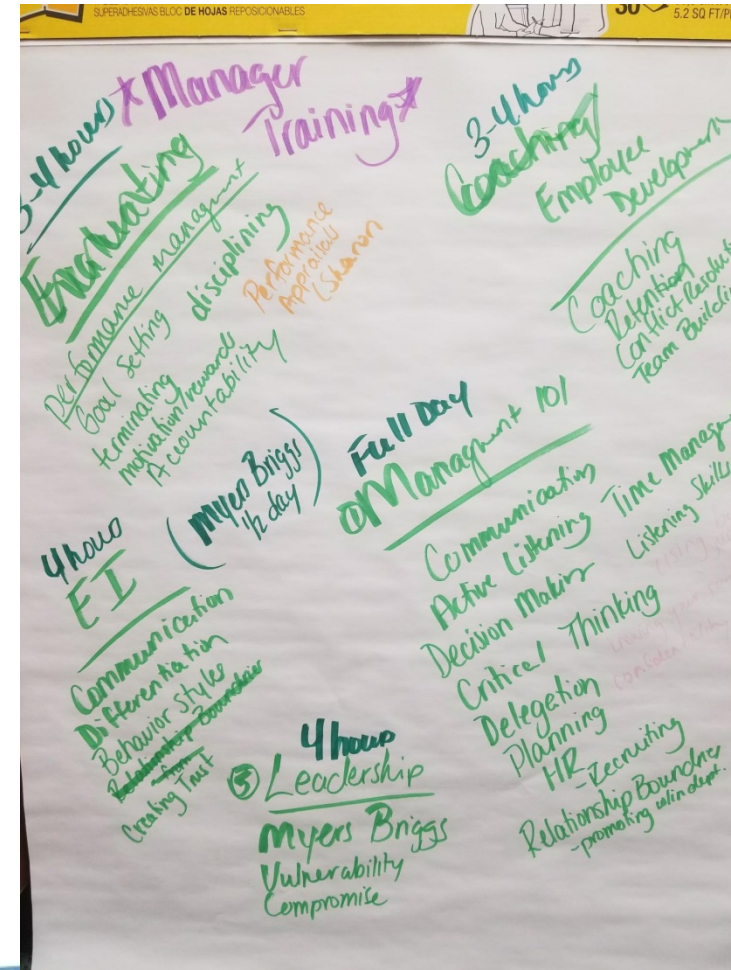 SUPERADHESIVAS BLOC DE HOJAS REPOSICIONABLES
30
5.2 SQ FT/P
*Manager
Training*
3-4 hours
Evaluating
Performance managment
Goal Setting
disciplining
terminating
motivation/rewards
Accountability
Performance
Appraisals
(Sharon
3-4 hours
Coaching
Employee
Development
Coaching
Retention
Conflict Resolut
Team Buildin
(Myers Briggs
1/2 day)
4 hours
EI
Communication
Differentiation
Behavior Styles
Relationship Boundries
Creating Trust
Full Day
Managment 101
Communication
Active Listening
Decision Making
Critical Thinking
Delegation
Planning
HR
- Recruiting
Relationship Boundries
- promoting w/in dept.
Time Manage
Listening Skills
4 hours
Leadership
Myers Briggs
Vulnerability
Compromise